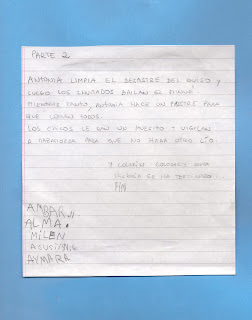 PARTE 2
ANTONIA LIMPIA EL DESASTRE DEL GUISO Y
LUEGO LOS INVITADOS BAILAN EL
MIENTRAS TANTO, ANTONIA HACE UN POSTRE PARA
QUE COMAN TODOS.
LOS CHICOS LE DAN UN PUESTITO Y VIGILAN
A PARA QUE NO HAGA OTRO LÍO.
Y COLORÍN COLORADO ESTA
HISTORIA SE HA TERMINADO...
FIN
AMBAR
ALMA.
MILEN
AGUSTINA
AYMARA